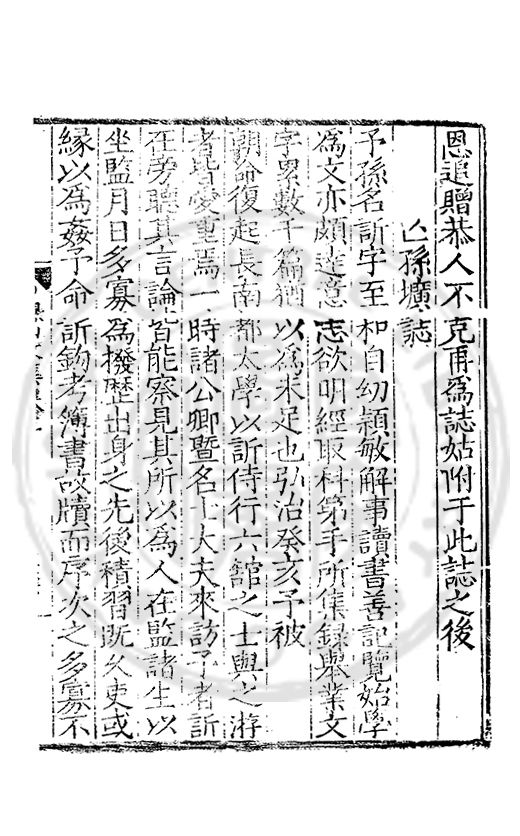 恩追贈恭人不克再為誌姑附于此誌之後
亡孫壙誌
予孫名訢字至和自幼穎敏解事讀書善記覽始學
為文亦頗達意志欲明經取科第手所集録舉業文
字累數千篇猶以為未足也弘治癸亥予被
朝命復起長南都太學以訢侍行六館之士與之游
者皆愛重焉一時諸公卿暨名士大夫來訪予者訢
在旁聽其言論皆能察見其所以為人在監諸生以
坐監月日多寡為撥歷出身之先後積習既久吏或
緣以為姦予命訢鈎考簿書故牘而序次之多寡不